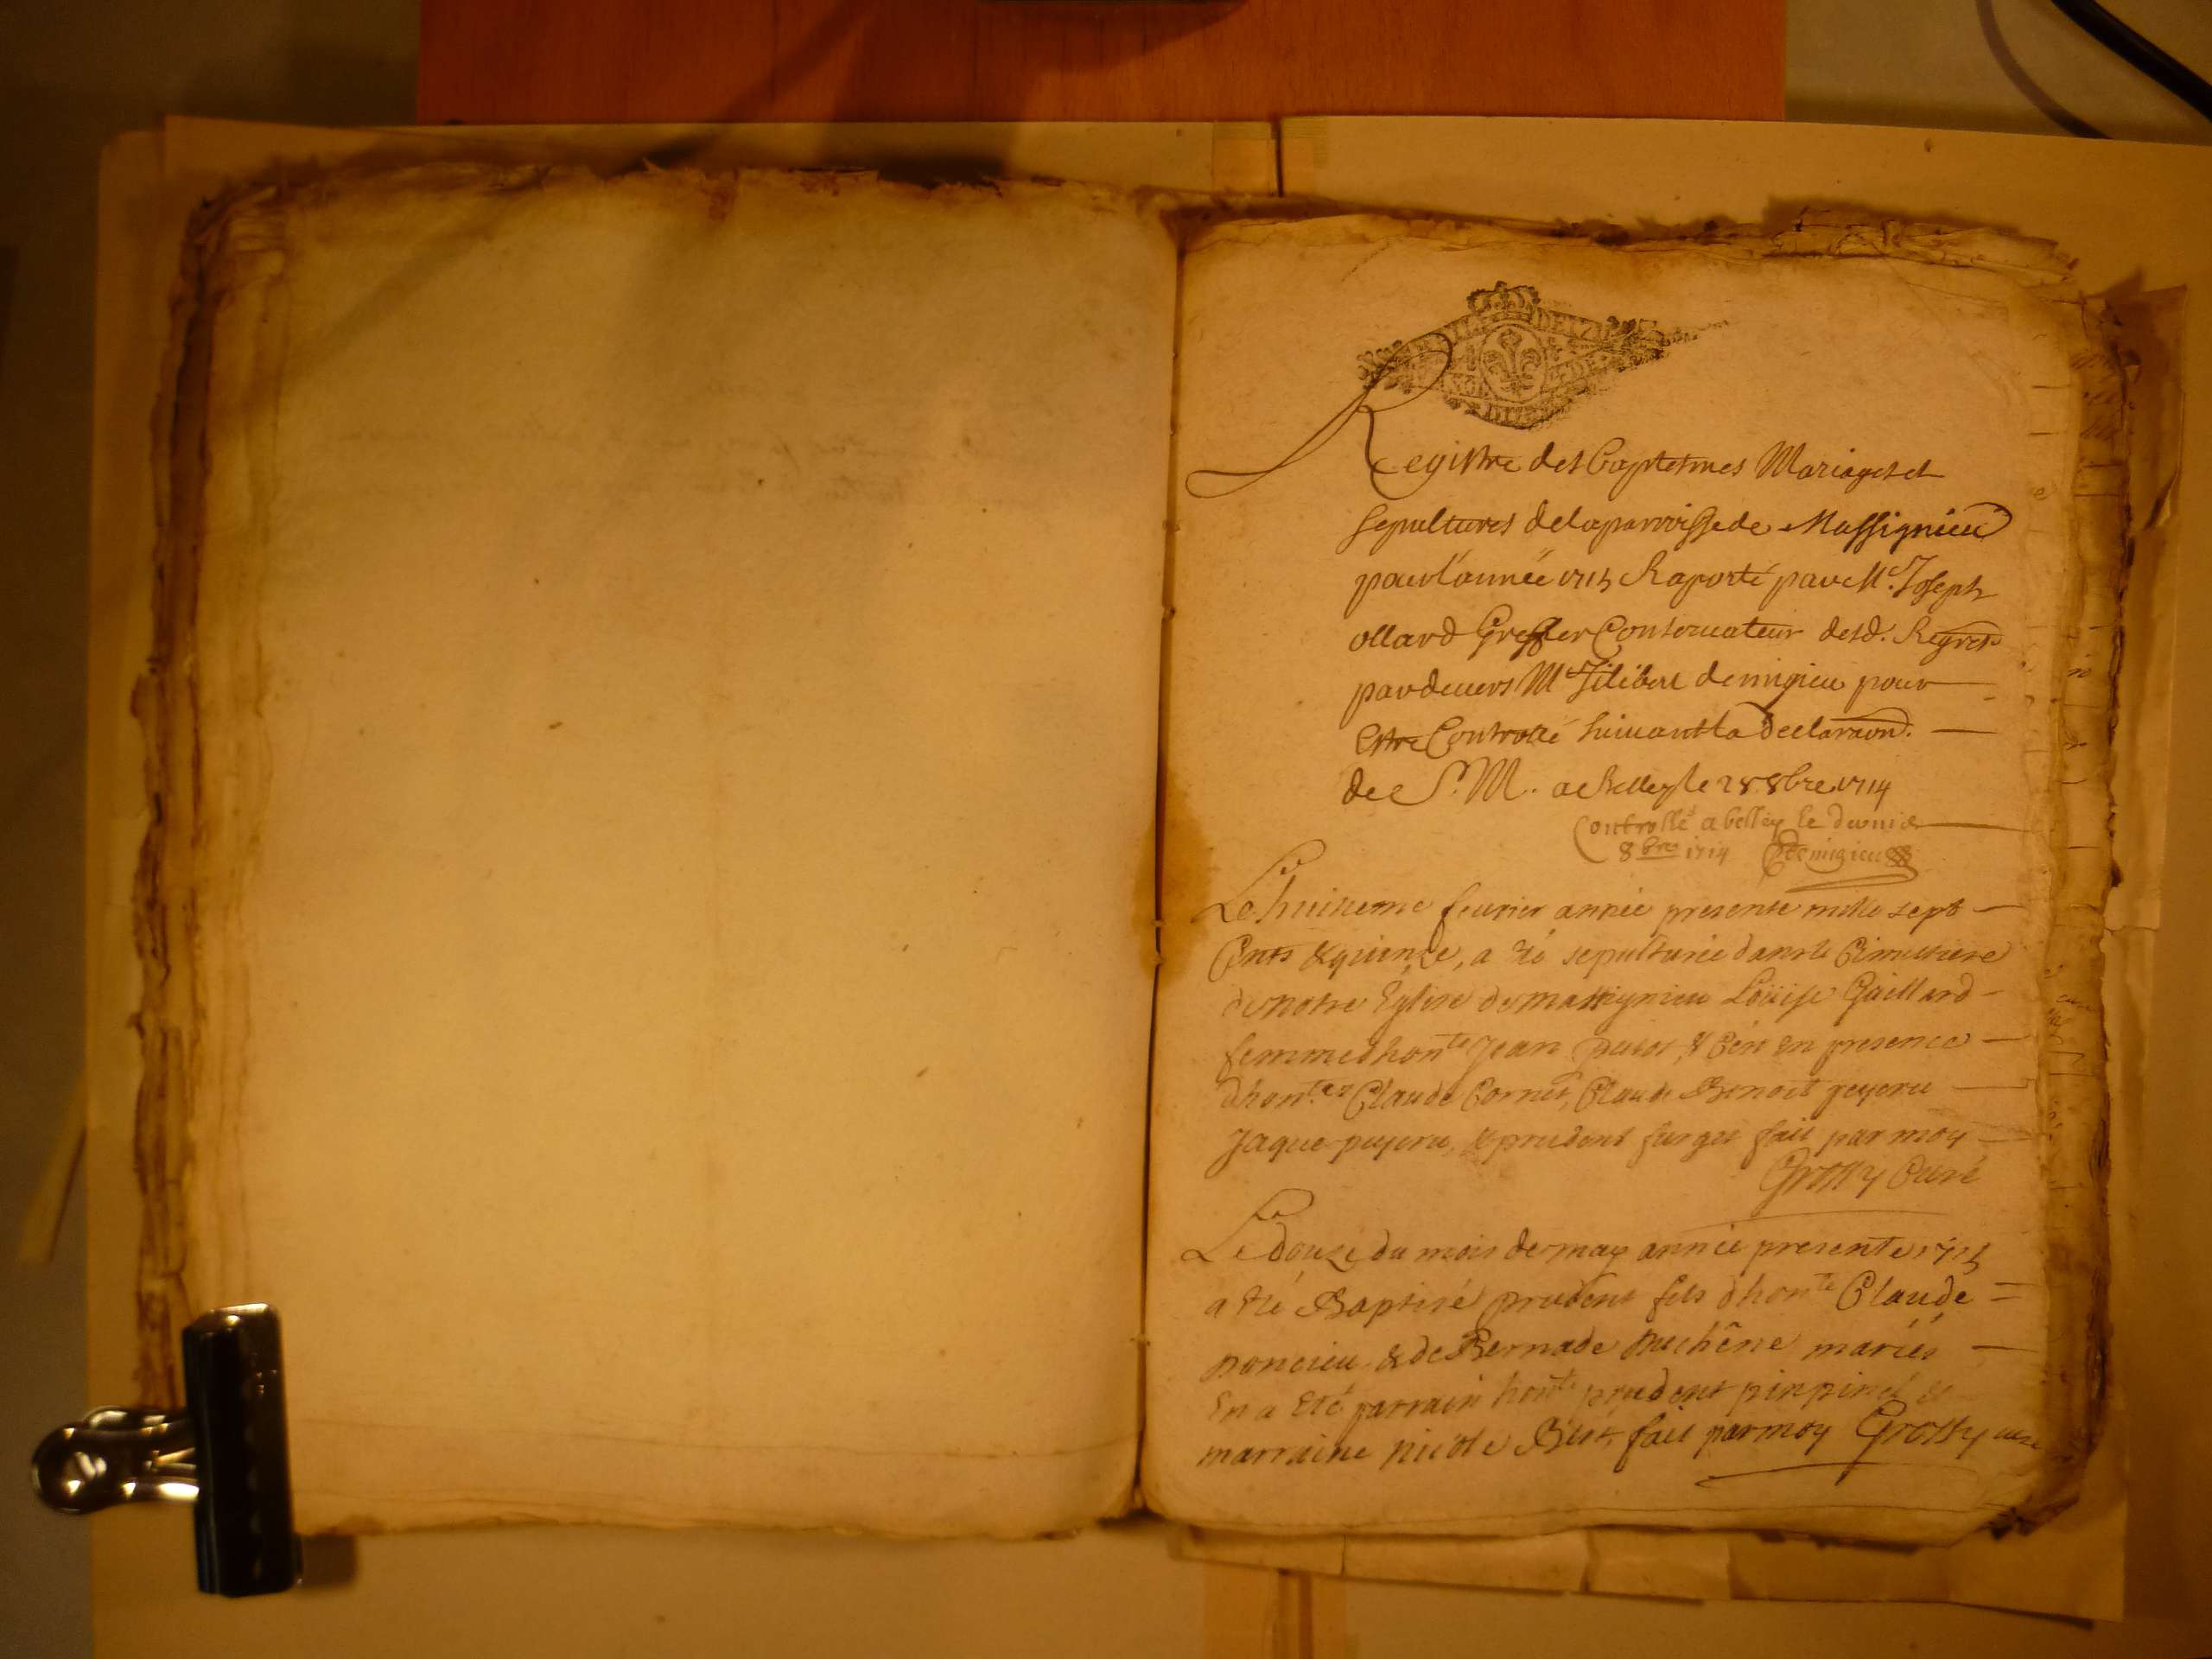 Registre des Baptesmes Mariages et
sepultures de la parroisse de Massignieu
pour l'année 1715 Raporté par Me. Joseph
ollard Greffier Conseruateur desd. Regres
pardeuers Me filibert demigieu pour
Estre Controllé suiuant la declaraon.
de S. M. a Belley le 28. 8bre 1714
Controllé a belley le dernie
8bres 1714 Demigieu
Le huitieme feurier année presente mille sept
Cents & quinze, a eté sepulturée dans le Cimettiere
de notre Eglise de massignieu Loüise Gaillard
femme d honte Jean & Cen en presence
dhon.tes Claude Cornet, Claude Benoit peyeru
Jaque peyeru, & prudent furget fait par moy
Grossy Curé
Le douze du mois de may année presente 1715
a eté Baptisé prudent fils d honte Claude
poncieu & de Bernade Duchêne mariés
En a eté parrain honte prudent pinpinet &
marraine nicole fait par moy Grossy cure